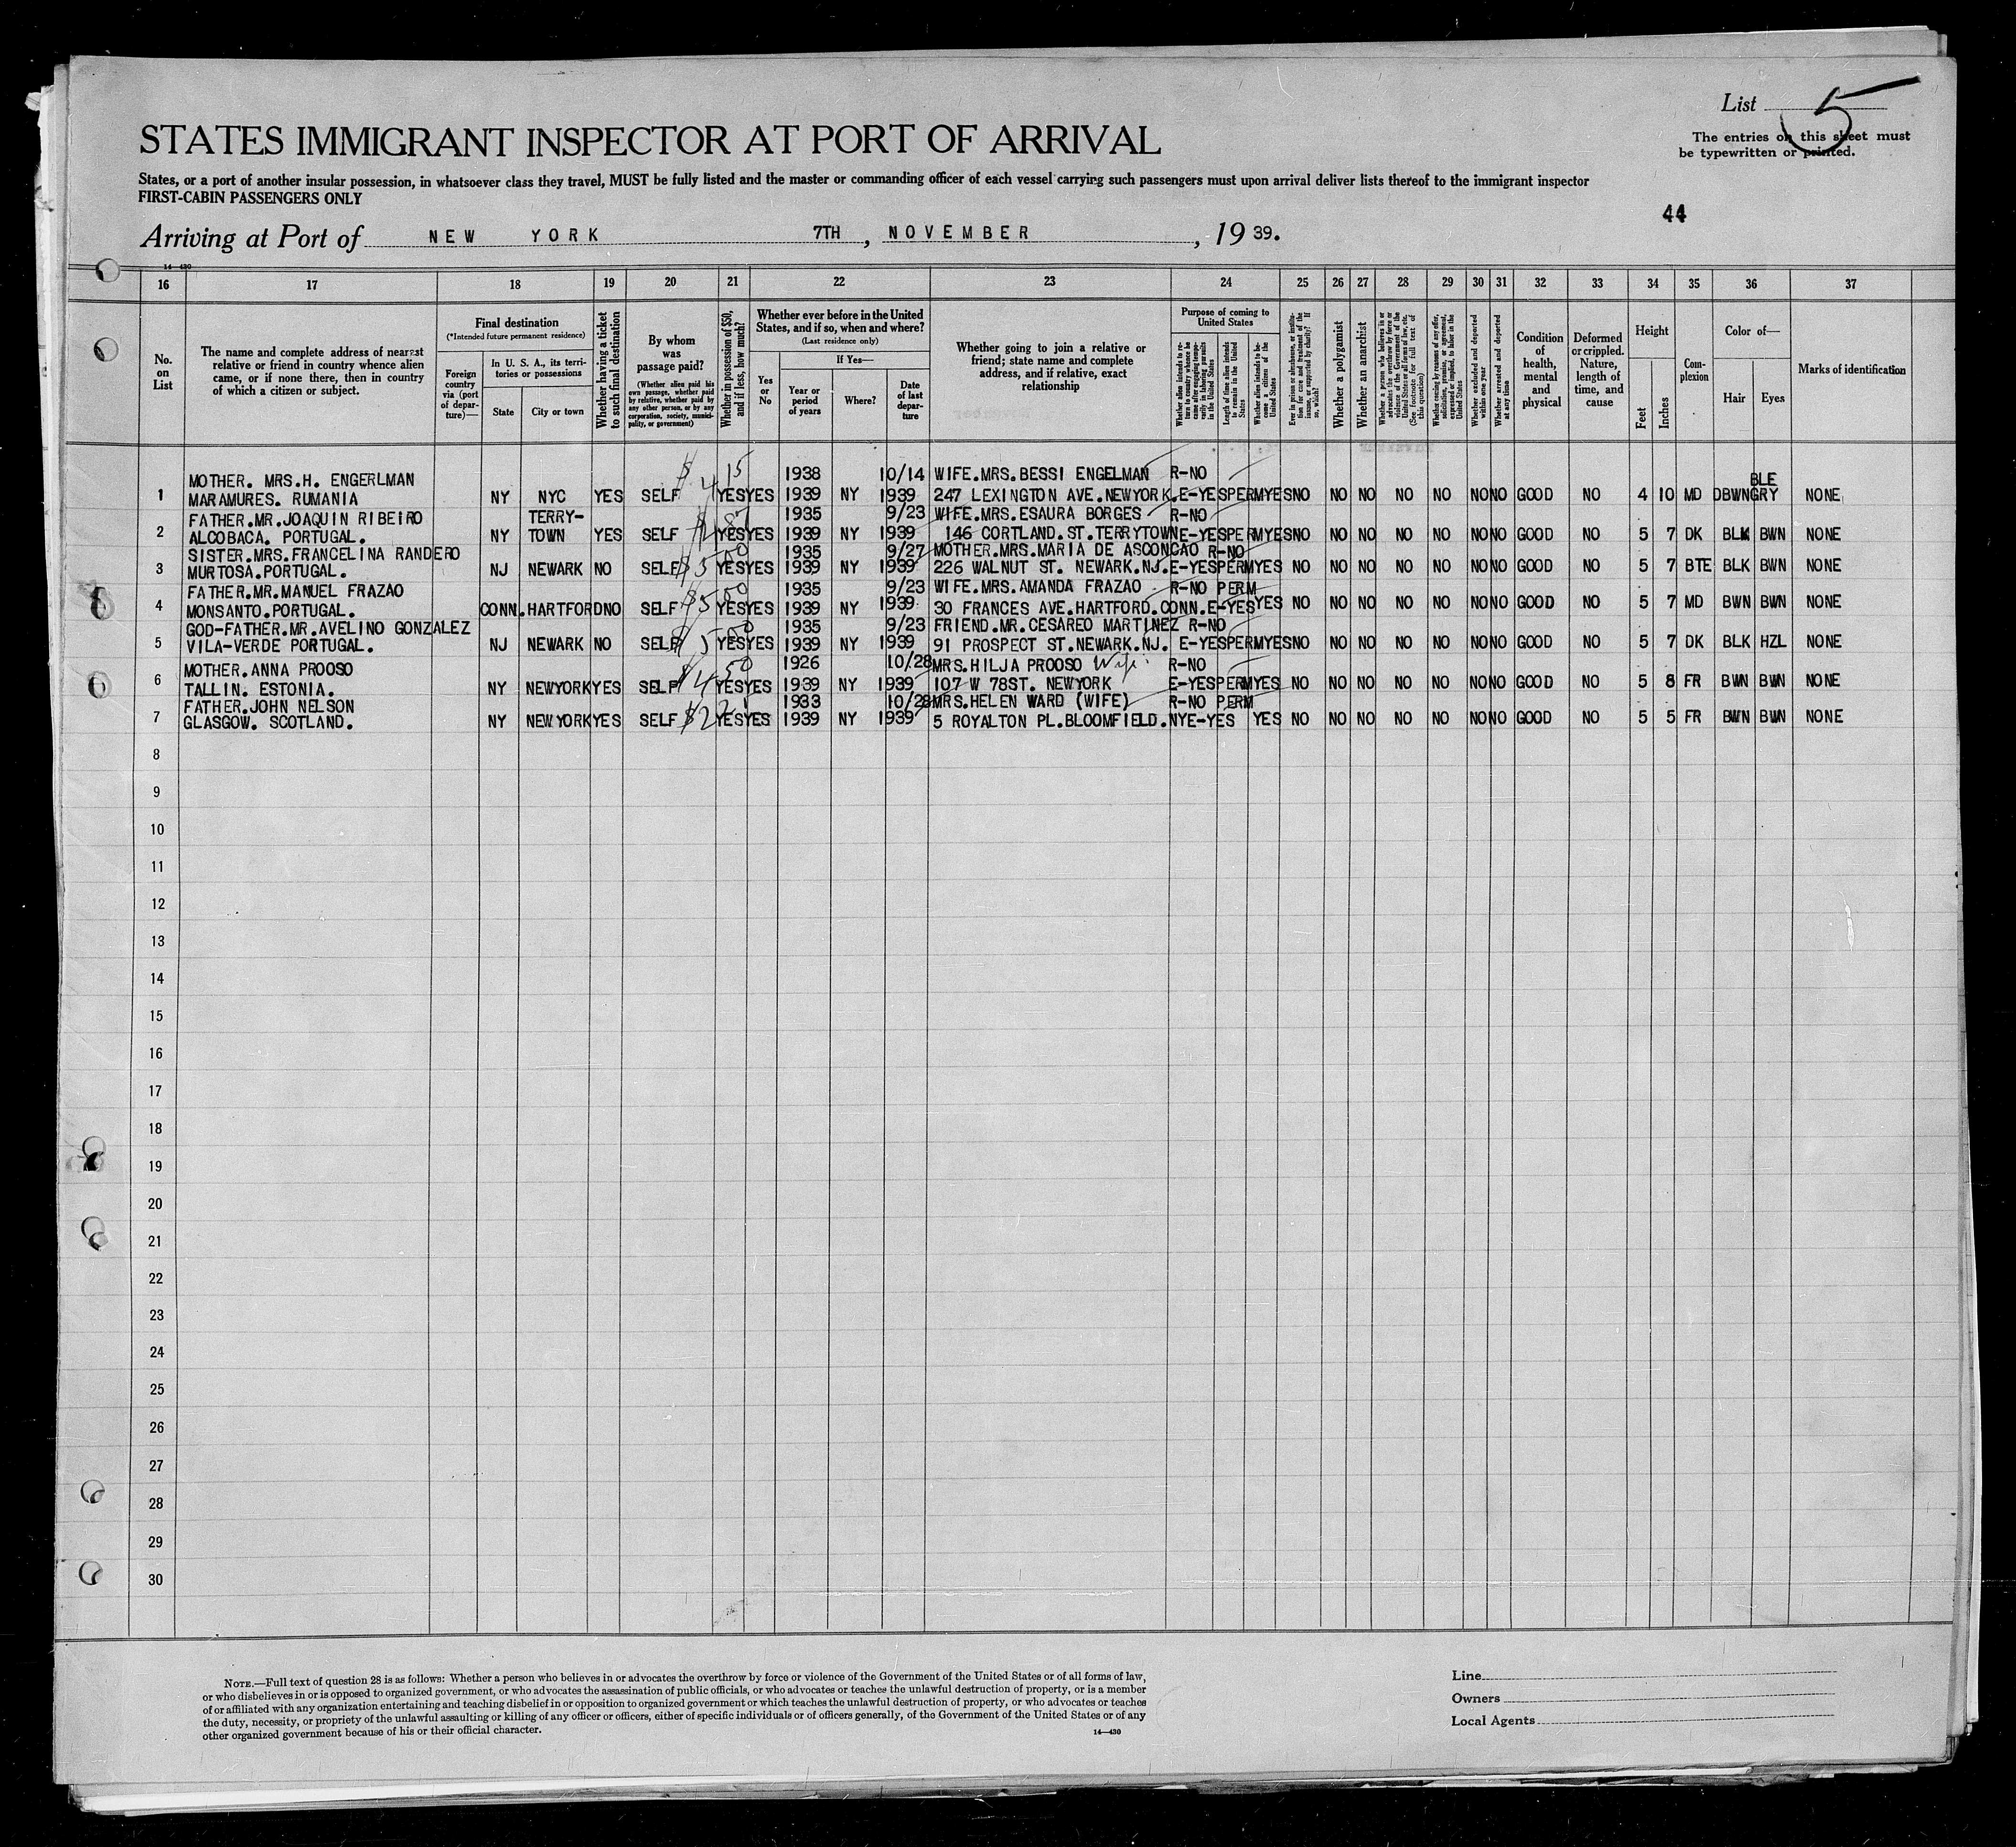 List 5
STATES IMMIGRANT INSPECTOR AT PORT OF ARRIVAL
The entries on this sheet must
be typewritten or printed.
States, or a port of another insular possession, in whatsoever class they travel, MUST be fully listed and the master or commanding officer of each vessel carrying such passengers must upon arrival deliver lists thereof to the immigrant inspector
FIRST-CABIN PASSENGERS ONLY
44
Arriving at Port of NEW YORK 7TH, NOVEMBER, 19 39.
14—430
16 17 18 19 20 21 22 23 24 25 26 27 28 29 30 31 32 33 34 35 36 37
No. on List
The name and complete address of nearest relative or friend in country whence alien came, or if none there, then in country of which a citizen or subject.
Final destination
(*Intended future permanent residence)
Foreign country via (port of departure)—
In U. S. A., its territories or possessions
State
City or town
Whether having a ticket to such final destination
By whom was passage paid?
(Whether alien paid his own passage, whether paid by relative, whether paid by any other person, or by any corporation, society, municipality, or government)
Whether in possession of $50, and if less, how much?
Whether ever before in the United States, and if so, when and where?
(Last residence only)
Yes or No
If Yes—
Year or period of years
Where?
Date of last departure
Whether going to join a relative or friend; state name and complete address, and if relative, exact relationship
Purpose of coming to United States
Whether alien intends to return to country whence he came after engaging temporarily in laboring pursuits in the United States
Length of time alien intends to remain in the United States
Whether alien intends to become a citizen of the United States
Ever in prison or almshouse, or institution for care and treatment of the insane, or supported by charity? If so, which?
Whether a polygamist
Whether an anarchist
Whether a person who believes in or advocates the overthrow by force or violence of the Government of the United States or all forms of law, etc. (See footnote for full text of this question)
Whether coming by reasons of any offer, solicitation, promise, or agreement, expressed or implied, to labor in the United States
Whether excluded and deported within one year
Whether arrested and deported at any time
Condition of health, mental and physical
Deformed or crippled. Nature, length of time, and cause
Height
Feet
Inches
Complexion
Color of—
Hair
Eyes
Marks of identification
MOTHER. MRS.H. ENGERLMAN $ 15 1938 10/14 WIFE.MRS.BESSI ENGELMAN R-NO BLE
1 MARAMURES. RUMANIA NY NYC YES SELF 4 YES YES 1939 NY 1939 247 LEXINGTON AVE.NEWYORK. E-YES PERM YES NO NO NO NO NO NO NO GOOD NO 4 10 MD DBWN GRY NONE
FATHER.MR.JOAQUIN RIBEIRO TERRY- 1935 9/23 WIFE.MRS.ESAURA BORGES R-NO
2 ALCOBACA. PORTUGAL. NY TOWN YES SELF YES YES 1939 NY 1939 146 CORTLAND.ST.TERRYTOWN E-YES PERM YES NO NO NO NO NO NO NO GOOD NO 5 7 DK BLK BWN NONE
SISTER.MRS.FRANCELINA RANDERO 1935 9/27 MOTHER.MRS.MARIA DE ASCONCAO R-NO
3 MURTOSA.PORTUGAL. NJ NEWARK NO SELF $500 YES YES 1939 NY 1939 226 WALNUT ST. NEWARK.NJ. E-YES PERM YES NO NO NO NO NO NO NO GOOD NO 5 7 BTE BLK BWN NONE
FATHER.MR.MANUEL FRAZAO 1935 9/23 WIFE.MRS.AMANDA FRAZAO R-NO PERM
4 MONSANTO.PORTUGAL. CONN. HARTFORD NO SELF $550 YES YES 1939 NY 1939 30 FRANCES AVE.HARTFORD.CONN. E-YES YES NO NO NO NO NO NO NO GOOD NO 5 7 MD BWN BWN NONE
GOD-FATHER.MR.AVELINO GONZALEZ 1935 9/23 FRIEND.MR.CESAREO MARTINEZ R-NO
5 VILA-VERDE PORTUGAL. NJ NEWARK NO SELF YES YES 1939 NY 1939 91 PROSPECT ST.NEWARK.NJ. E-YES PERM YES NO NO NO NO NO NO NO GOOD NO 5 7 DK BLK HZL NONE
MOTHER.ANNA PROOSO 1926 10/28 MRS.HILJA PROOSO Wife R-NO
6 TALLIN. ESTONIA. NY NEWYORK YES SELF $450 YES YES 1939 NY 1939 107 W 78ST. NEWYORK E-YES PERM YES NO NO NO NO NO NO NO GOOD NO 5 8 FR BWN BWN NONE
FATHER.JOHN NELSON 1933 10/28 MRS.HELEN WARD (WIFE) R-NO PERM
7 GLASGOW. SCOTLAND. NY NEWYORK YES SELF YES YES 1939 NY 1939 5 ROYALTON PL.BLOOMFIELD.NY E-YES YES NO NO NO NO NO NO NO GOOD NO 5 5 FR BWN BWN NONE
8
9
10
11
12
13
14
15
16
17
18
19
20
21
22
23
24
25
26
27
28
29
30
NOTE.—Full text of question 28 is as follows: Whether a person who believes in or advocates the overthrow by force or violence of the Government of the United States or of all forms of law,
or who disbelieves in or is opposed to organized government, or who advocates the assassination of public officials, or who advocates or teaches the unlawful destruction of property, or is a member
of or affiliated with any organization entertaining and teaching disbelief in or opposition to organized government or which teaches the unlawful destruction of property, or who advocates or teaches
the duty, necessity, or propriety of the unlawful assaulting or killing of any officer or officers, either of specific individuals or of officers generally, of the Government of the United States or of any
other organized government because of his or their official character.
14—430
Line
Owners
Local Agents